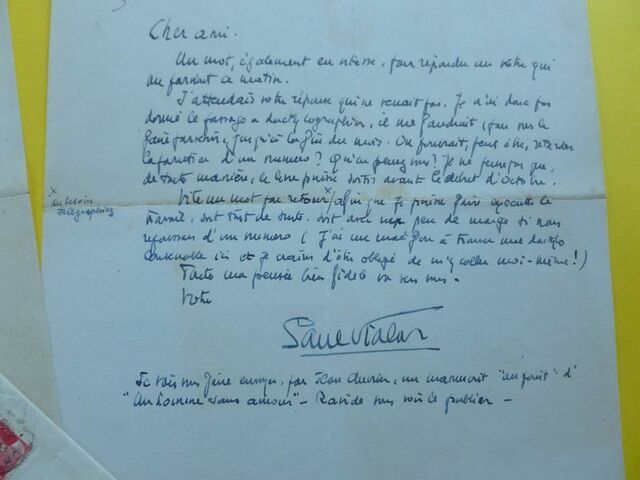 Cher ami.
Un mot, également en vitesse, pour répondre au votre qui
me parvient ce matin.
J'attendais votre réponse qui ne venait pas. Je n'ai donc pas
donné le passage à dactylographier, il me faudrait, pour vous le
faire parvenir, jusqu'à la fin du mois. On pourrait, peut-être, retarder
la parution d'un numéro? Qu'en pensez-vous? Je ne pense pas que,
de toute manière, le livre puisse sortir avant le début d'Octobre.
Vite un mot par retour x afin que je puisse faire exécuter le
x au besoin
télégraphiez
travail, soit tout de suite, soit avec un peu de marge si nous
repoussons d'un numéro (J'ai un mal fou à trouver une dactylo
convenable ici et je crains d'être obligé de m'y coller moi-même!)
Toute ma pensée bien fidèle va vers vous.
Votre
Paul Vialar
Je vais vous faire envoyer, par Jean, un manuscrit "au point" d'
"Un homme sans amour" - Ravi de vous voir le publier -